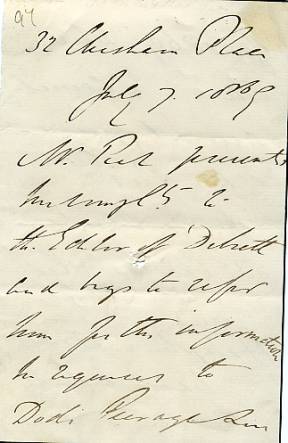 97
32 Chesham Place
July 7. 1869
Mr. Peel presents
his compts to
the Editor of Debrett
and begs to refer
him for the information
he requires to
Dod's Peerage &c